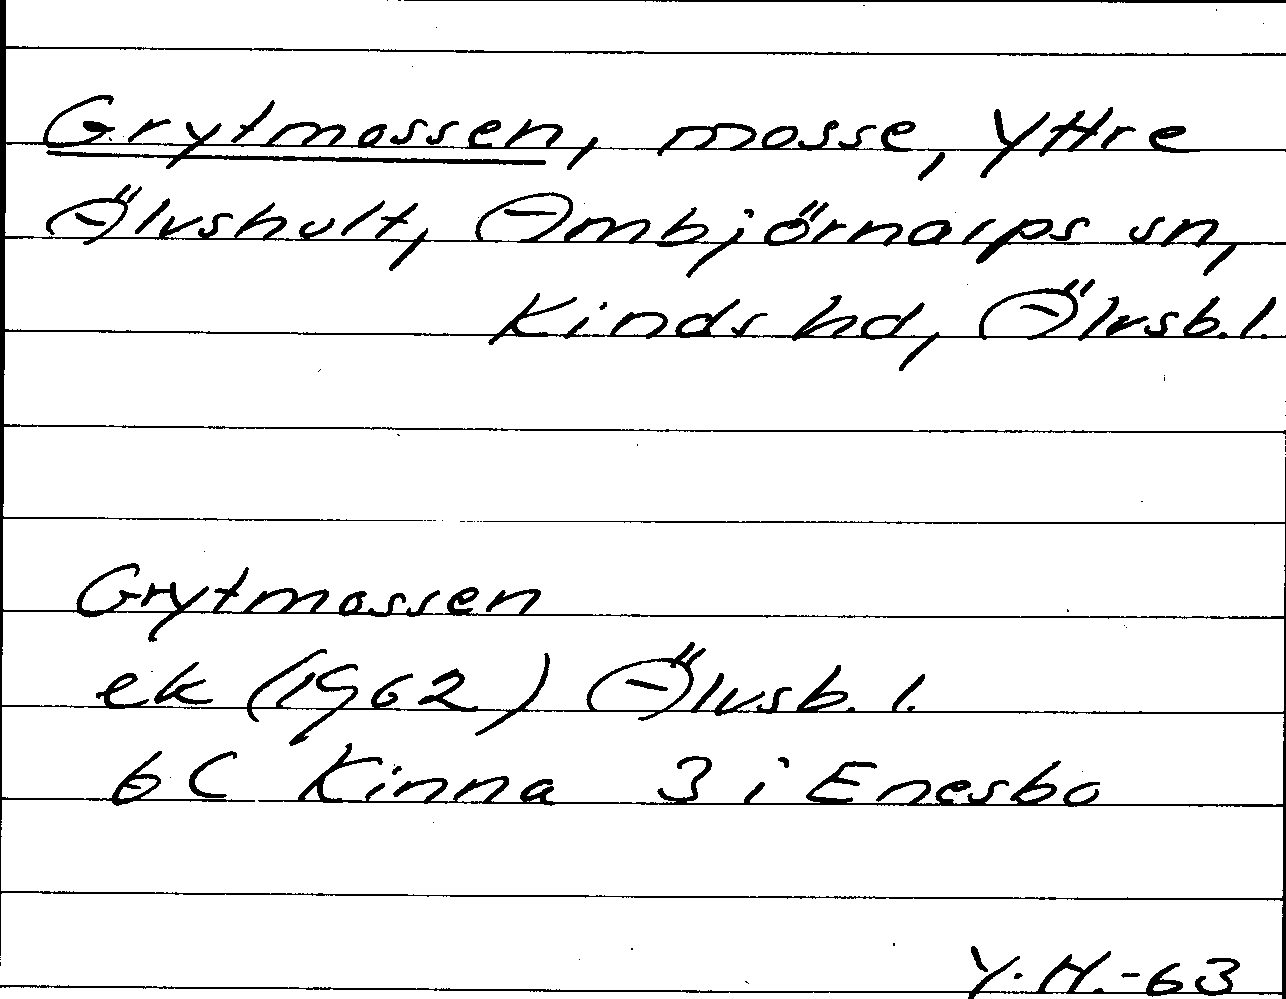 Grytmossen, mosse, Yttre
Älvshult, Ambjörnarps sn,
Kinds hd, Älvsb.l.
Grytmossen
ek (1962) Älvsb. l.
6 C Kinna 3 i Enesbo
Y.H.-63